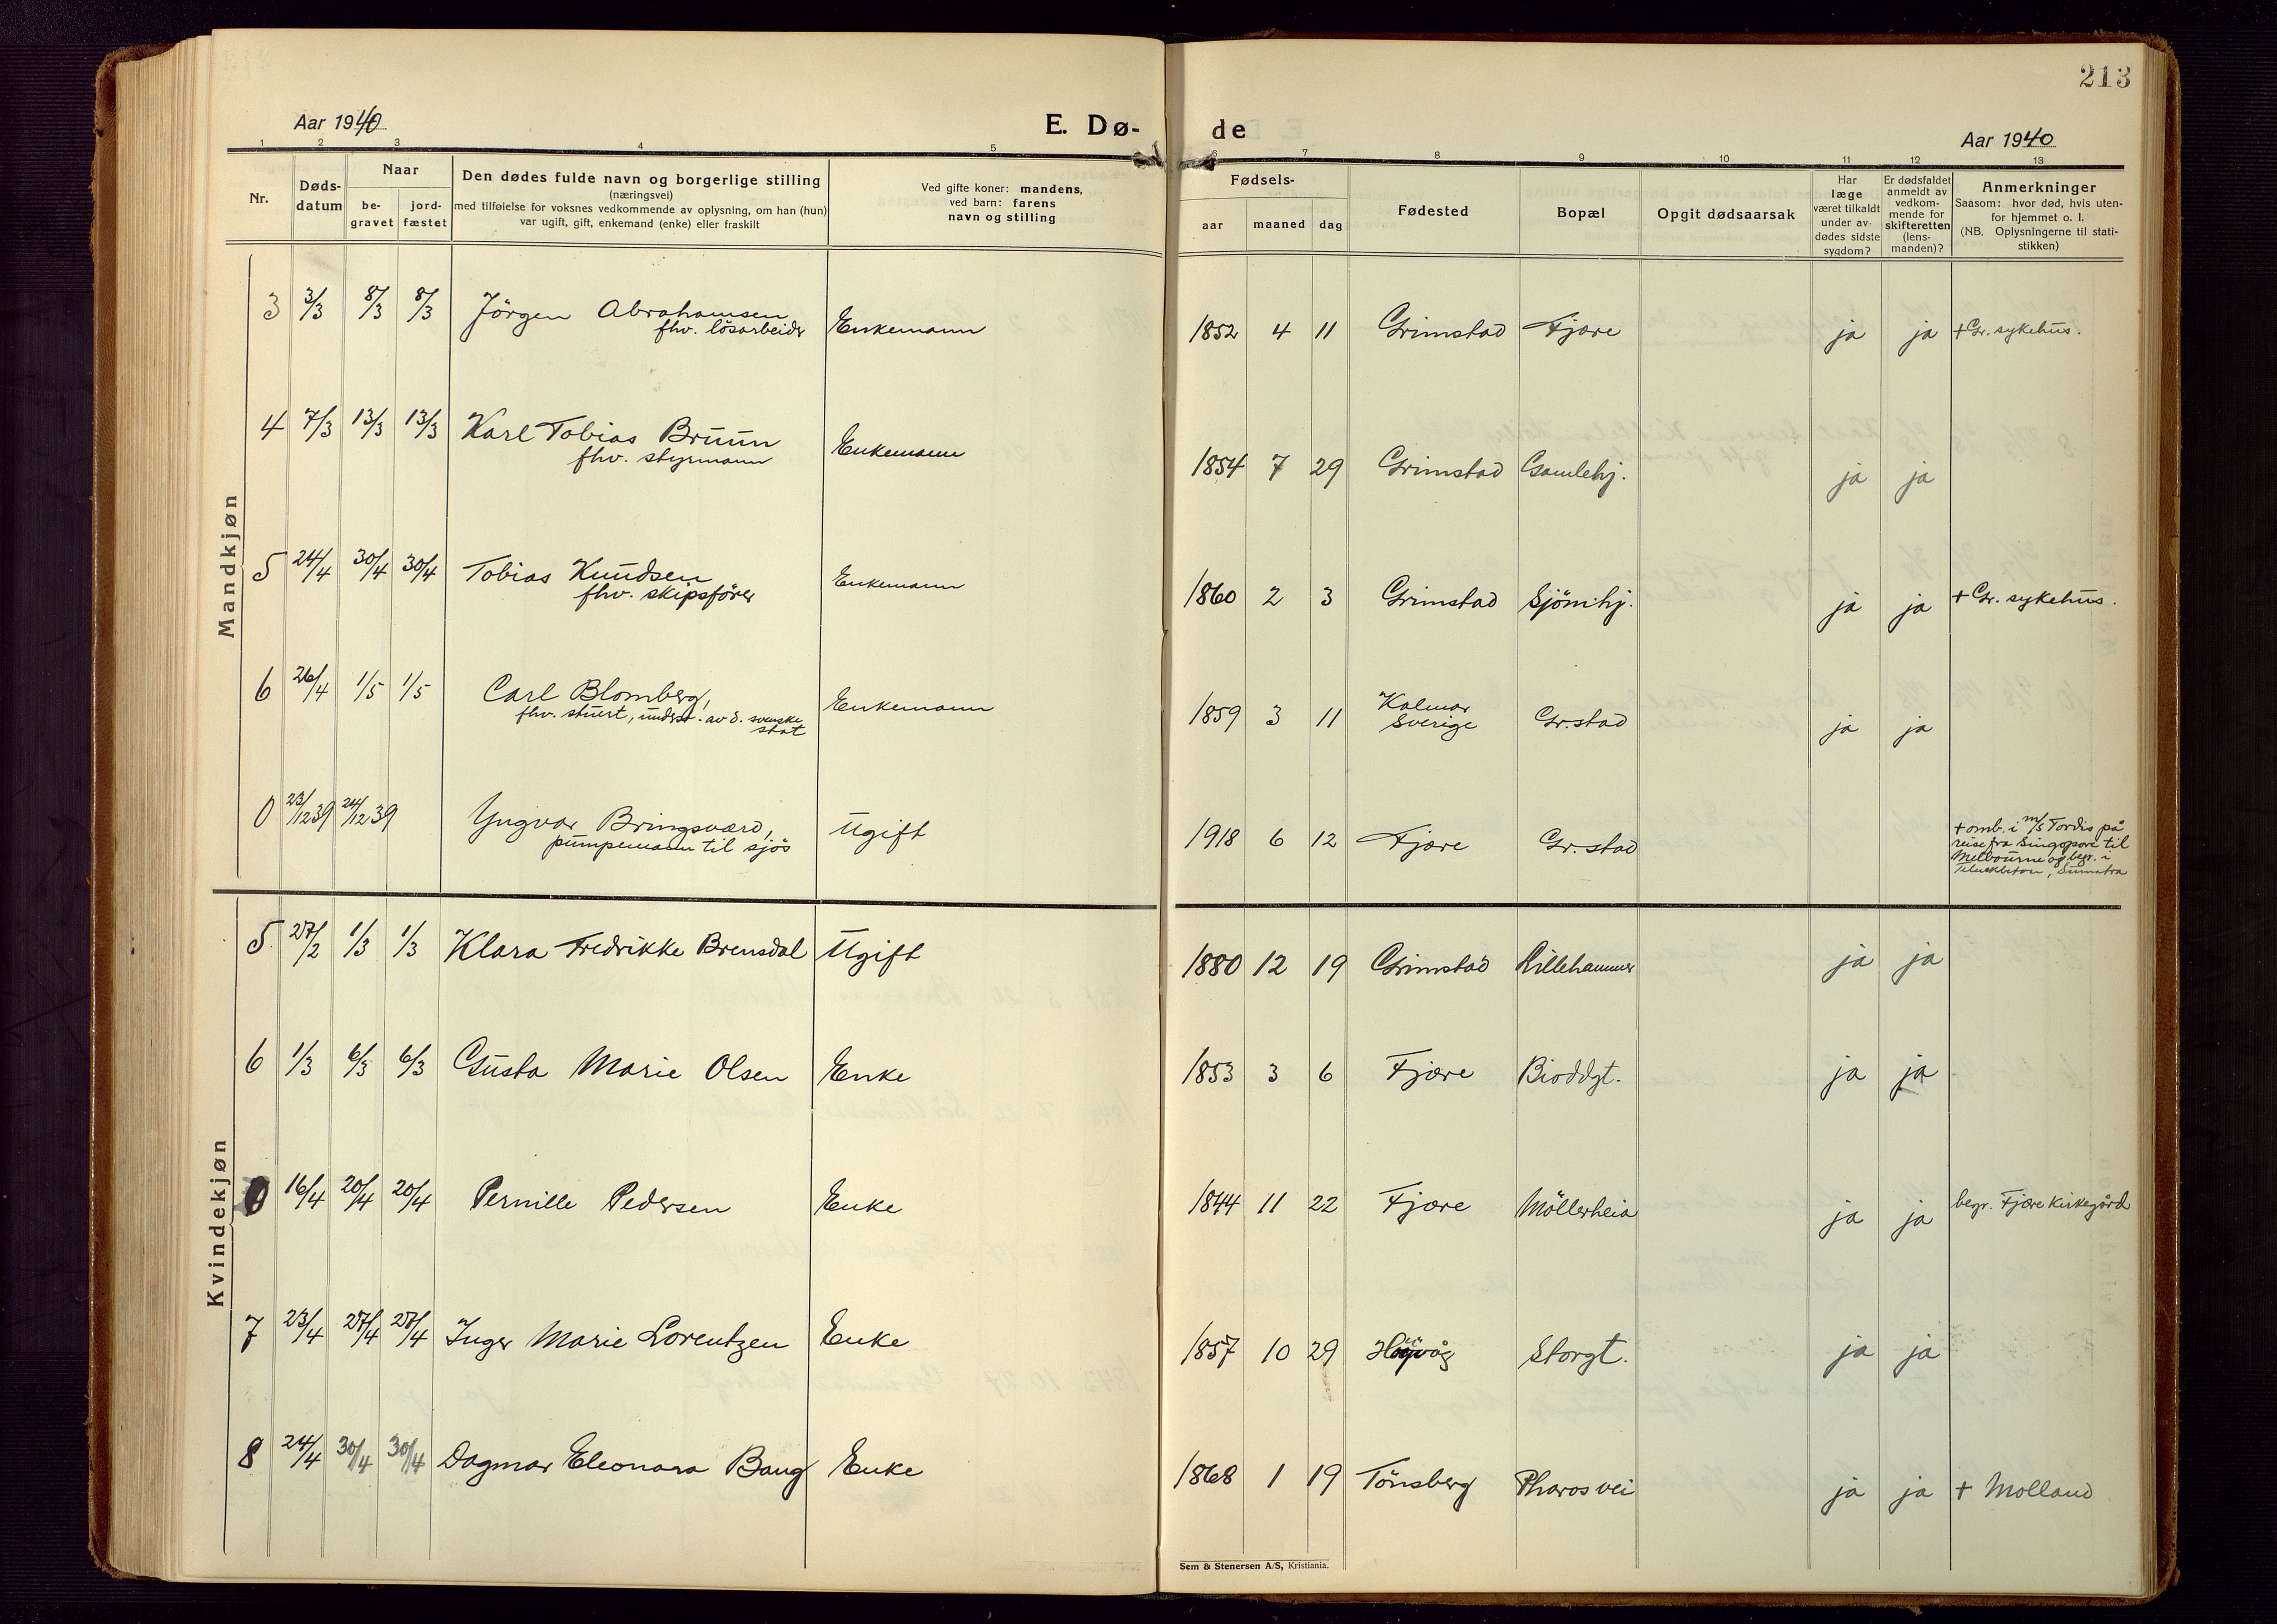 213
Aar 1940
E. Dø-
de
Aar 1940
1 2 3 4 5 6 7 8 9 10 11 12 13
Nr.
Døds-
datum
Naar
be-
gravet
jord-
fæstet
Den dødes fulde navn og borgerlige stilling
(næringsvei)
med tilføielse for voksnes vedkommende av oplysning, om han (hun)
var ugift, gift, enkemand (enke) eller fraskilt
Ved gifte koner: mandens,
ved barn: farens
navn og stilling
Fødsels-
aar maaned dag
Fødested
Bopæl
Opgit dødsaarsak
Har
læge
været tilkaldt
under av-
dødes sidste
sygdom?
Er dødsfaldet
anmeldt av
vedkom-
mende for
skifteretten
(lens-
manden)?
Anmerkninger
Saasom: hvor død, hvis uten-
for hjemmet o. l.
(NB. Oplysningerne til stati-
stikken)
Mandkjøn
3 3/3 8/3 8/3 Jörgen Abrahamsen Enkemann 1852 4 11 Grimstad Fjære ja ja + Gr. sykehus.
fhv. lösarbeider
4 7/3 13/3 13/3 Karl Tobias Bruun Enkemann 1854 7 29 Grimstad Gamlehj. ja ja
fhv. styrmann
5 24/4 30/4 30/4 Tobias Knudsen Enkemann 1860 2 3 Grimstad Sjömhj. ja ja + Gr. sykehus.
fhv. skipsförer
6 26/4 1/5 1/5 Carl Blomberg, Enkemann 1859 3 11 Kalmar Sverige Gr.stad ja ja
fhv. stuert, underst. av d. svenske
stat
0 23/12 39 24/12 39 Yngvar Bringsværd, Ugift 1918 6 12 Fjære Gr.stad
pumpemann til sjös
+ omb. i m/s Tordis på
reise fra Singapore til
Melbourne og begr. i
Sumatra
Kvindekjøn
5 27/2 1/3 1/3 Klara Fredrikke Brensdal Ugift 1880 12 19 Grimstad Lillehammer ja ja
6 1/3 6/3 6/3 Gusta Marie Olsen Enke 1853 3 6 Fjære Bioddgt. ja ja
0 16/4 20/4 20/4 Pernille Pedersen Enke 1844 11 22 Fjære Möllerheia ja ja begr. Fjære Kirkegård
7 23/4 27/4 27/4 Inger Marie Lorentzen Enke 1857 10 29 Storgt. ja ja
8 24/4 30/4 30/4 Dagmar Eleonora Baug Enke 1868 1 19 Tönsberg Pharosvei ja ja + Molland
Sem & Stenersen A/S, Kristiania.